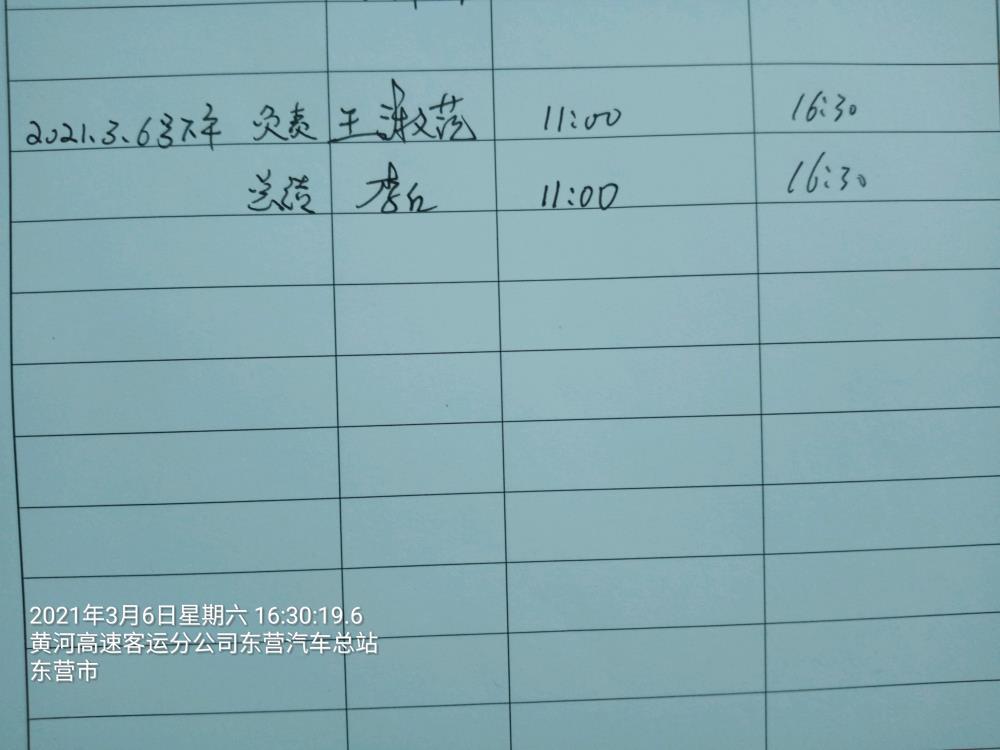 2021.3.6号下午 负责 王淑范 11:00 16:30
李 11:00 16:30
2021年3月6日星期六 16:30:19.6
黄河高速客运分公司东营汽车总站
东营市